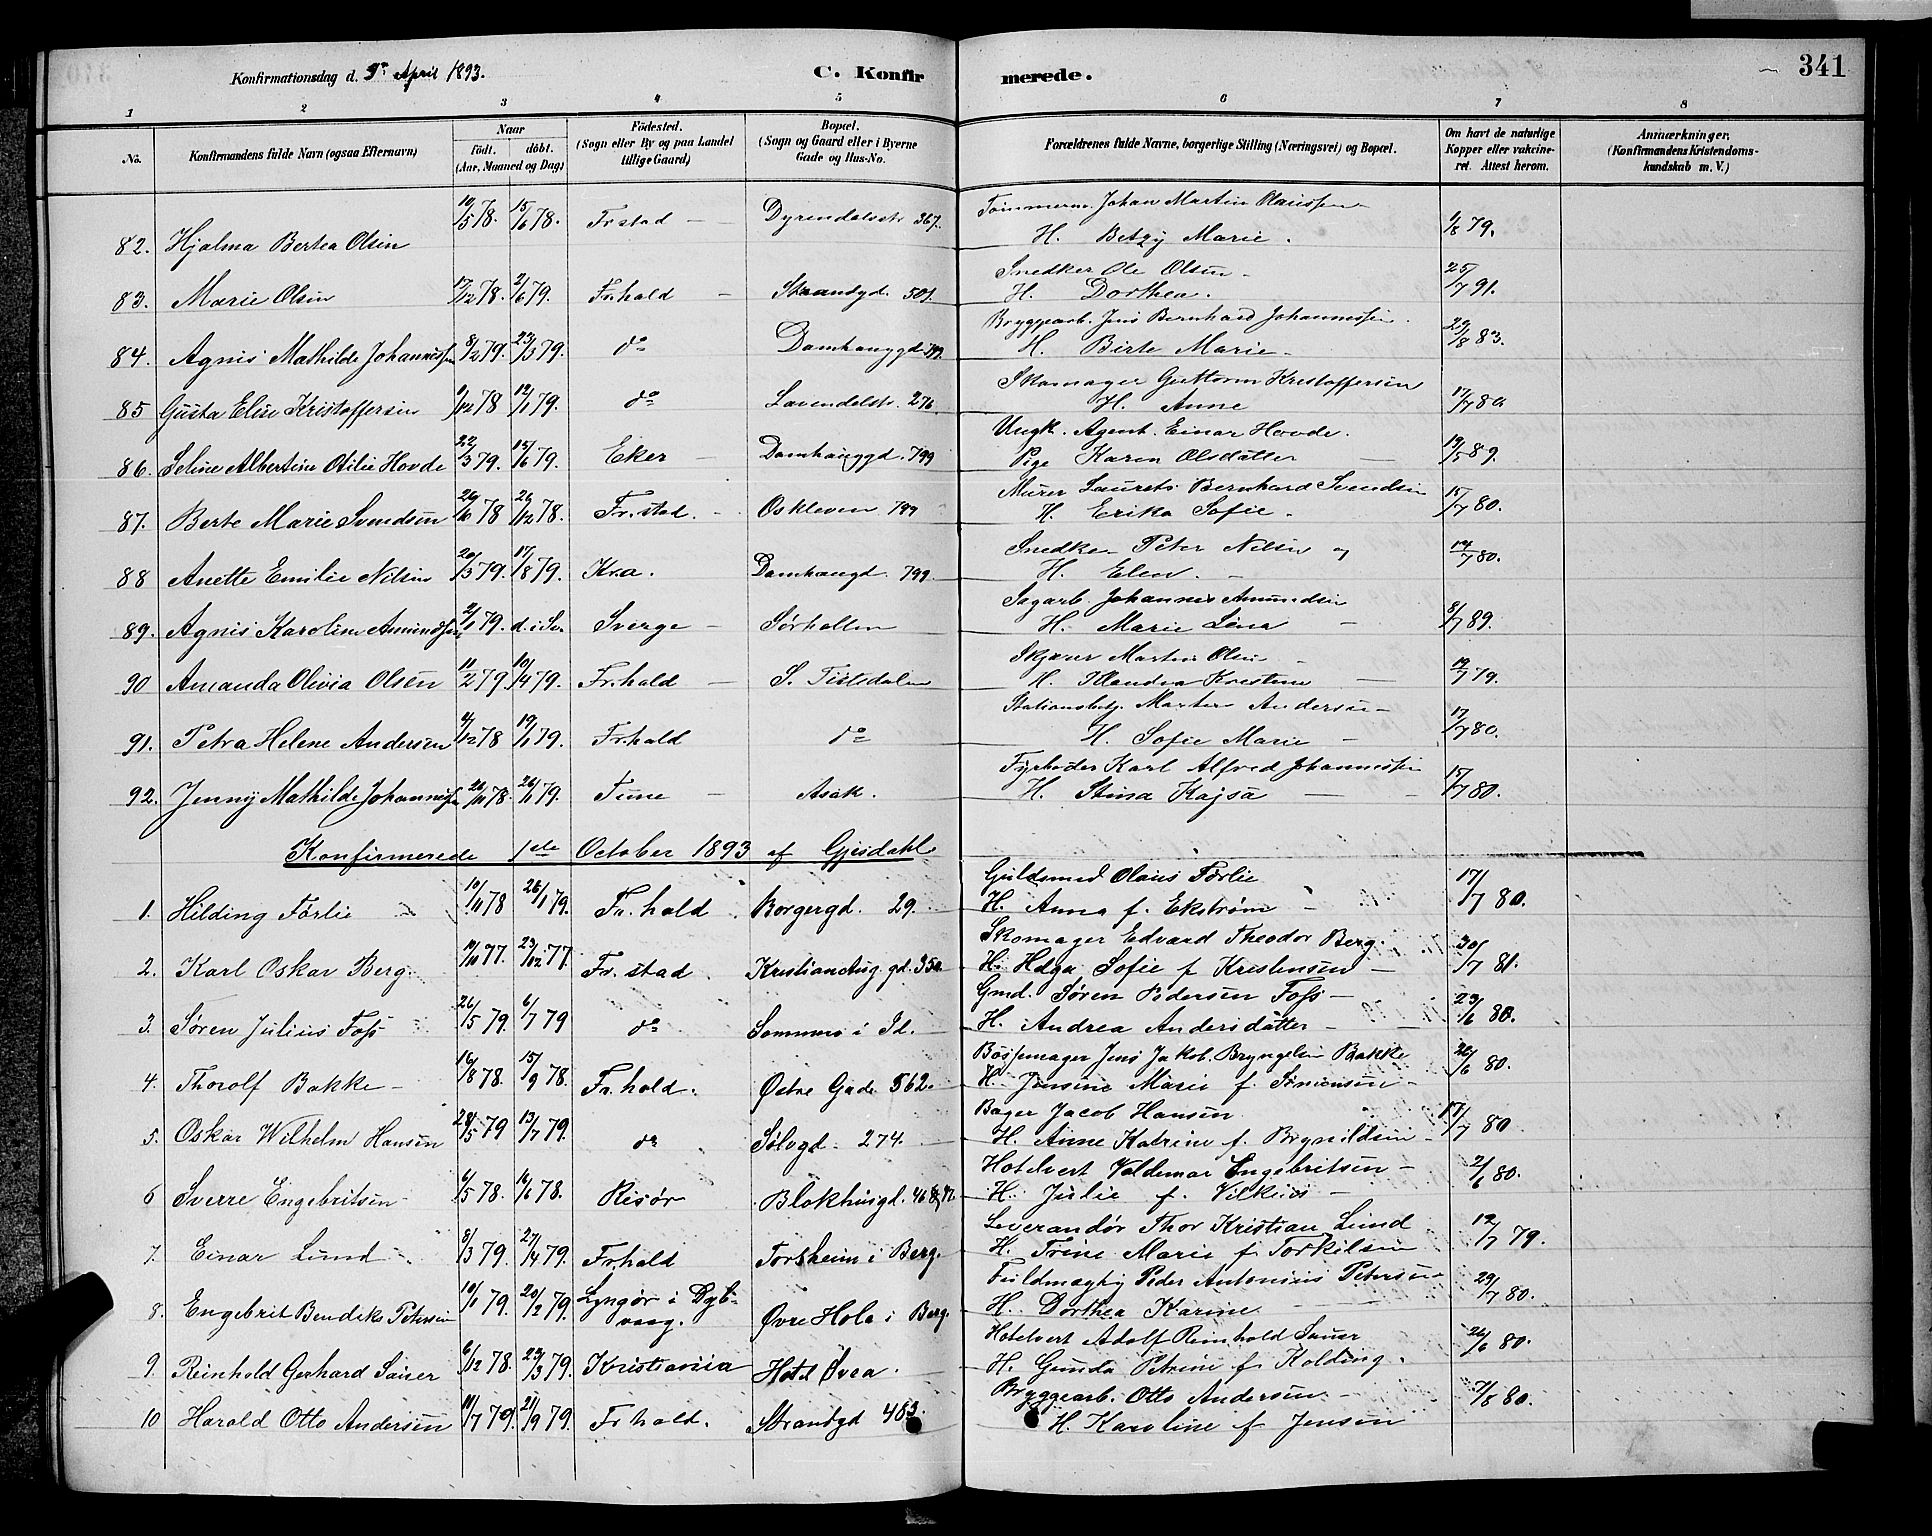 Konfirmationsdag d. 9de April 1893. C. Konfirmerede. 341
1 2 3 4 5 6 7 8
No. Konfirmandens fulde Navn (ogsaa Efternavn) Naar født. døbt. (Aar, Maaned og Dag) Fødested. (Sogn eller By og paa Landet tillige Gaard) Bopæl. (Sogn og Gaard eller i Byerne Gade og Hus-No. Forældrenes fulde Navne, borgerlige Stilling (Næringsvei) og Bopæl. Om havt de naturlige Kopper eller vakcineret. Attest herom. Anmærkninger, (Konfirmandens Kristendomskundskab m. V.)
82. Hjalma Bertea Olsen 10/5 78. 15/6 78. Fr.stad Dyrendalsstr 367. Tømmerm. Johan Martin Olaussen H. Betzy Marie. 1/8 79.
83. Marie Olsen 17/12 78. 2/6 79. Fr.hald Strandgd. 501. Snedker Ole Olsen H. Dorthea. 25/7 91.
84. Agnes Mathilde Johannesen 8/2 79. 23/3 79. do Damhauggd. 799. Bryggearb. Jens Bernhard Johannessen. H. Birte Marie 29/8 83.
85 Gusta Elise Kristoffersen 9/12 78 12/1 79. do Lavendelstr. 276. Skomager Guttorm Kristoffersen H. Anne 17/7 80
86. Seline Albertine Otilie Hovde 22/3 79. 15/6 79. Eker Damhauggd. 799 Ungk. Agent. Einar Hovde. Pige Karen Olsdatter 19/5 89.
87. Berte Marie Svendsen 26/10 78 26/12 78. Fr.stad. Oskleven 799 Murer Laurets Bernhard Svendsen H. Erika Sofie 15/7 80.
88 Anette Emilie Nilsen 20/3 79. 17/8 79. Kr.a. Damhaugd. 799. Snedker Peter Nilsen og H. Elen. 17/7 80.
89. Agnes Karoline Amundsen 2/1 79. d. i Sv. Sverge Sørhallen Sagarb. Johannes Amundsen H. Marie Lena 8/7 89.
90 Amanda Olivia Olsen 11/2 79. 10/4 79. Fr.hald S. Tistedalen Skjærer Martin Olsen H. Mandia Kristine 12/7 79.
91. Petra Helene Andersen 4/12 78 19/1 79. Fr.hald do Stationsbetj. Martin Andersen H. Sofie Marie 17/7 80.
92. Jenny Mathilde Johannesen 20/11 78. 26/1 79. Tune Asak. Fyrbøder Karl Alfred Johannessen H. Stina Kajsa 15/7 80.
Konfirmerede 1ste October 1893 af Gjesdahl
1. Hilding Førlie 10/11 78 26/1 79. Fr.hald Borgergd. 29. Guldsmed Olaus Førlie H. Anna f. Ekstrøm 17/7 80.
2. Karl Oskar Berg. 10/10 77. 23/12 77 Fr.stad. gd. 350 Skomager Edvard Theodor Berg. H. Helga Sofie f Kristensen 30/7 81.
3. Søren Julius Foss 26/5 79. 6/7 79 do i Id. Gmd. Søren Pedersen Foss H. Andrea Andersdatter 23/6 80.
4. Thorolf Bakke 16/8 78. 15/9 78. Fr.hald. Østre Gade 562. Bøssemager Jens Jakob Bryngelsen Bakke H. Jensine Marie f. Simensen 26/6 80.
5. Oskar Wilhelm Hansen 24/5 79 13/7 79. do Sølvgd. 274. Bager Jacob Hansen H. Anne Katrine f. Brynildsen 17/7 80
6 Sverre Engebritsen 4/5 78. 16/6 78. Risør Blokhusgd. 468 Hotelvert Valdemar Engebritsen H. Julie f. 2/6 80.
7. Einar Lund 8/3 79. 27/4 79. Fr.hald Torsheim i Berg. Leverandør Thor Kristian Lund H. Trine Marie f Torkilsen 12/7 79.
8. Engebrit Bendiks Petersen 10/1 79. 20/2 79. Lyngør i Dybvaag. Øvre Hola i Berg. Fuldmægtig Peder Antonius Petersen H. Dorthea Karine 29/7 80.
9. Reinhold Gerhard Sauer 6/12 78. 23/3 79. Kristiania Hotel Øvea. Hotelvert Adolf Reinhold Sauer H. Gunda Petrine f Kolding. 26/6 80.
10 Harald Otto Andersen 10/7 79. 21/9 79. Fr.hald. Strandgd 483. Bryggearb. Otto Andersen H. Karoline f Jensen 7/8 80.